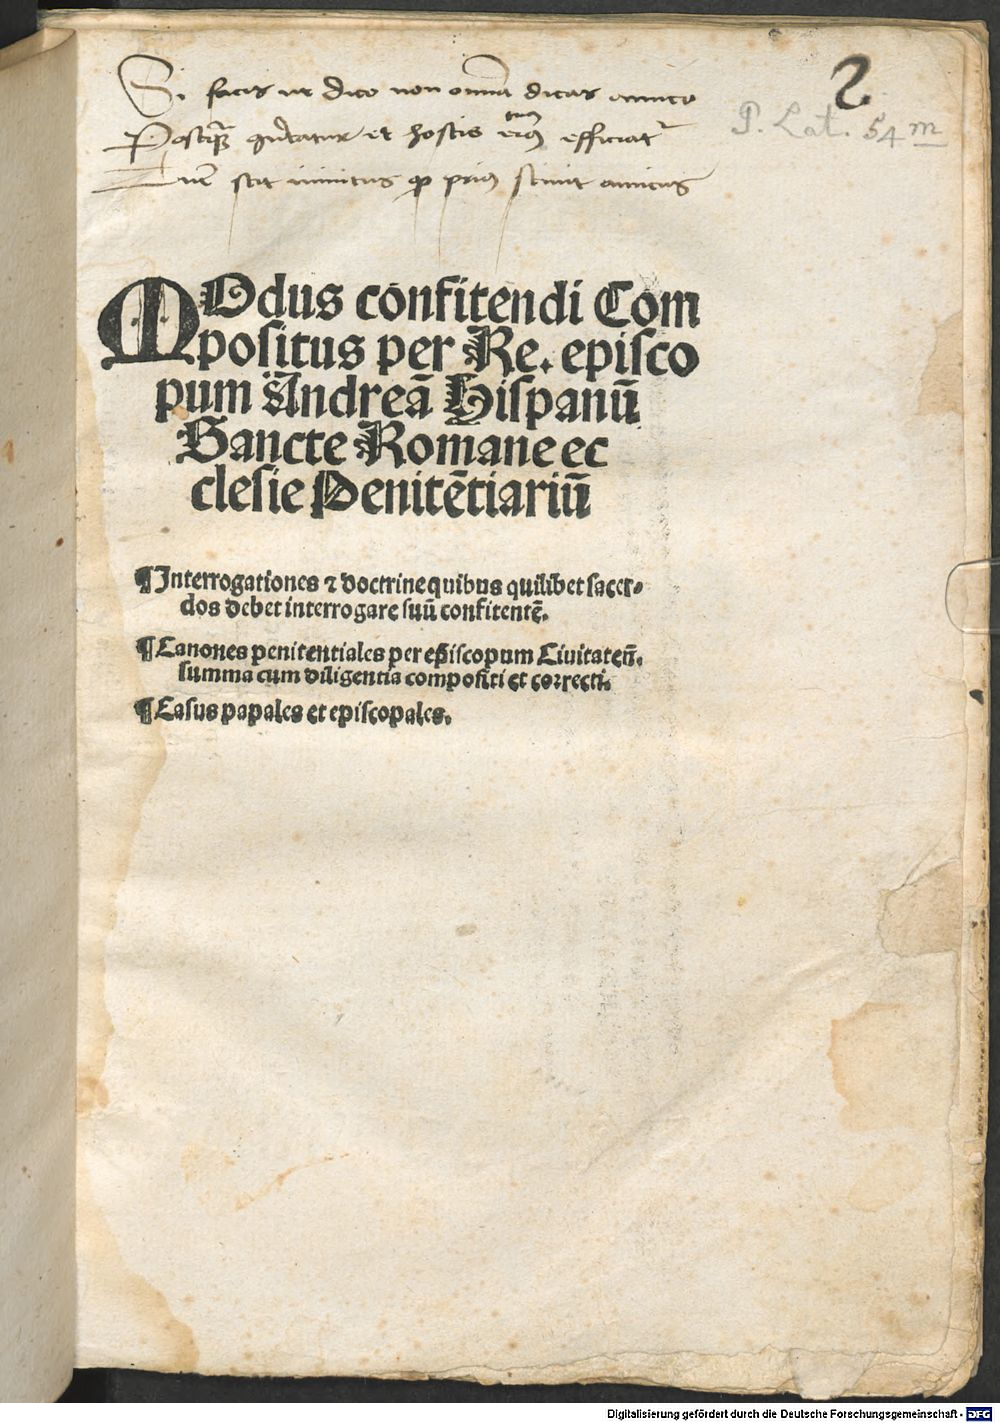 Si facis ut dico non omnia dicas amico
2
P. Lat. 54 m
et hostis tuus efficiat᷑
scit prius amicus
MOdus confitendi Com
positus per Re. episco
pum Andreā Hispanū
Sancte Romane ec
clesie Penitētiariū
¶ Interrogationes ⁊ doctrine quibus quilibet sacer⸗
dos debet interrogare suū confitentē.
¶ Canones penitentiales per ep̄iscopum Ciuitateñ.
summa cum diligentia compositi et correcti.
¶ Casus papales et episcopales.
Digitalisierung gefördert durch die Deutsche Forschungsgemeinschaft - DFG